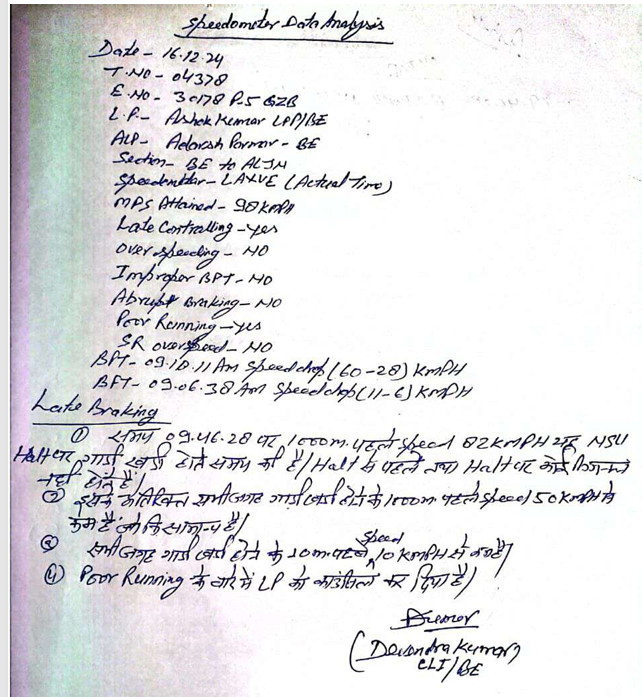 Speedometer Data Analysis
Date - 16.12.24
T.NO - 04378
E.NO. - 30178 P-5 GZB
L.P. - Ashok Kumar LPP/BE
ALP - Adarsh Parmar - BE
Section - BE to ALJN
Speedometer - LAXVE (Actual Time)
MPS Attained - 98 KMPH
Late Controlling - Yes
Over speeding - NO
Improper BPT - NO
Abrupt Braking - NO
Poor Running - Yes
SR overspeed - NO
BFT - 09.10.11 AM Speed drop (60-28) KMPH
BPT - 09.06.38 AM Speed drop (11-6) KMPH
Late Braking
① समय 09.46.28 पर 1000m. पहले speed 82 KMPH यह NSU
Halt पर गाडी खडी होते समय की है। Halt से पहले तथा Halt पर कोई सिगनल
नही होते है।
② इसके अतिरिक्त सभी जगह गाडी खडी होने के 1000m पहले speed 50 KMPH से
कम है जो कि सामान्य है।
③ सभी जगह गाडी खडी होने के 10m पहले speed 10 KMPH से कम है।
④ Poor Running के बारे में LP को काउंसिल कर दिया है।
(Devendra Kumar)
CLI/BE